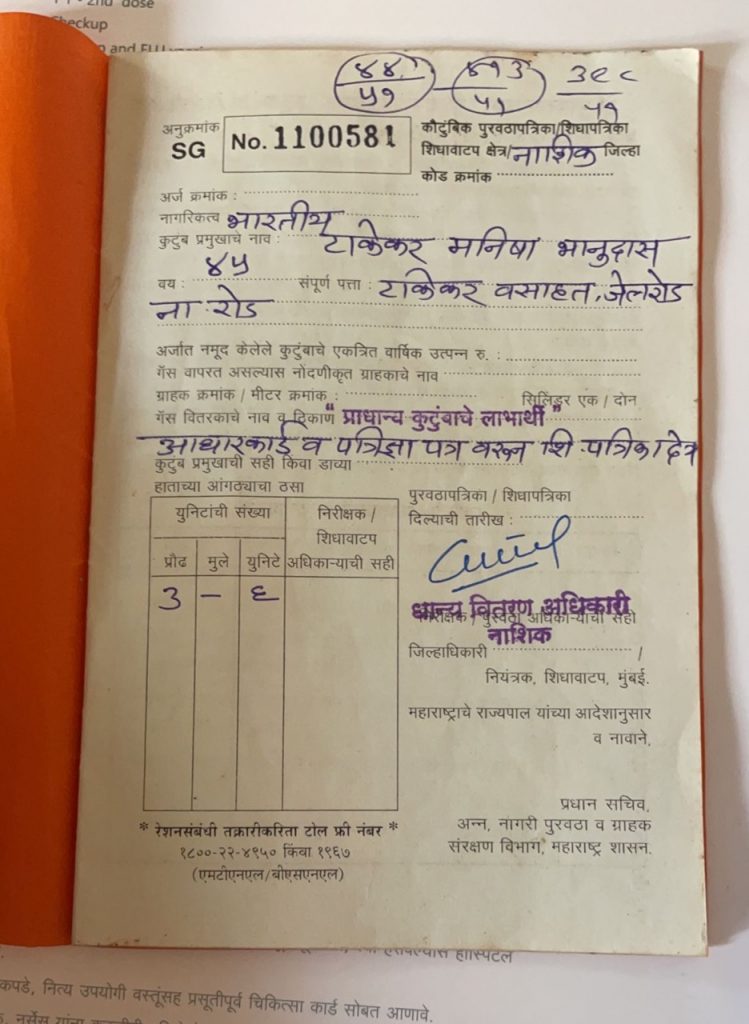 2nd dose
Checkup
४४१/५१ — ४१३/५१ ३८८/५१
अनुक्रमांक
SG
No. 1100581
कौटुंबिक पुरवठापत्रिका/शिधापत्रिका
शिधावाटप क्षेत्र/नाशिक जिल्हा
कोड क्रमांक
अर्ज क्रमांक :
नागरिकत्व भारतीय
कुटुंब प्रमुखाचे नाव : टाकेकर मनिषा भानुदास
वय : ४५ संपूर्ण पत्ता : टाकेकर वसाहत, जेलरोड
ना. रोड
अर्जात नमूद केलेले कुटुंबाचे एकत्रित वार्षिक उत्पन्न रु. :
गॅस वापरत असल्यास नोदणीकृत ग्राहकाचे नाव
ग्राहक क्रमांक / मीटर क्रमांक : सिलिंडर एक / दोन
गॅस वितरकाचे नाव व ठिकाण "प्राधान्य कुटुंबाचे लाभार्थी"
आधारकार्ड व पत्रिज्ञा पत्र वरून शि. पत्रिका देत
कुटुंब प्रमुखाची सही किंवा डाव्या
हाताच्या आंगठ्याचा ठसा
युनिटांची संख्या
निरीक्षक / शिधावाटप अधिकाऱ्याची सही
प्रौढ मुले युनिटे
3 — ६
पुरवठापत्रिका / शिधापत्रिका
दिल्याची तारीख :
धान्य वितरण अधिकारी
निरीक्षक / पुरवठा अधिकाऱ्याची सही
नाशिक
जिल्हाधिकारी /
नियंत्रक, शिधावाटप, मुंबई.
महाराष्ट्राचे राज्यपाल यांच्या आदेशानुसार
व नावाने,
प्रधान सचिव,
अन्न, नागरी पुरवठा व ग्राहक
संरक्षण विभाग, महाराष्ट्र शासन.
* रेशनसंबंधी तक्रारीकरिता टोल फ्री नंबर *
१८००-२२-४९५० किंवा १९६७
(एमटीएनएल/बीएसएनएल)
हॉस्पिटल
कपडे, नित्य उपयोगी वस्तूंसह प्रसूतीपूर्व चिकित्सा कार्ड सोबत आणावे.